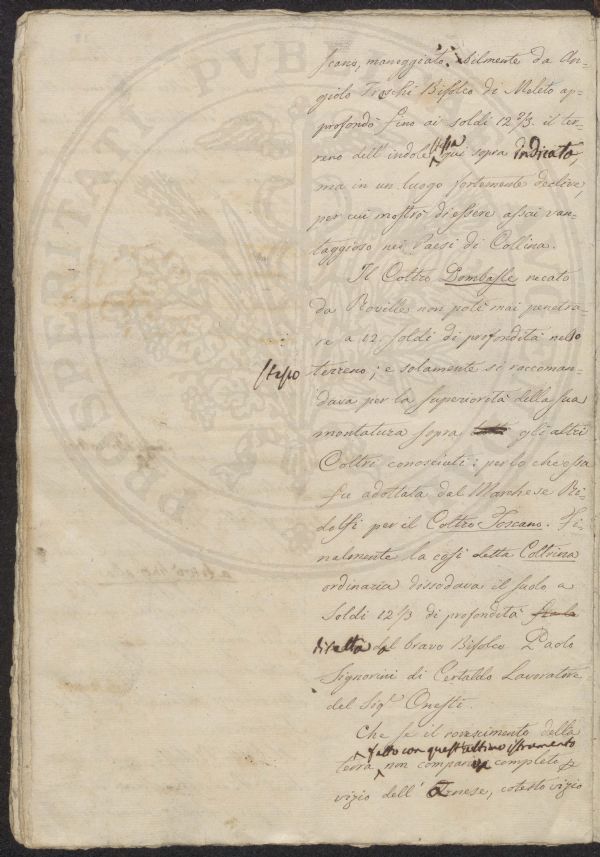 scano, maneggiato abilmente da An-
giolo Froschi Bifolco di Meleto ap-
profondò fino ai soldi 12 2/3. il ter-
reno dell' indole stessa qui sopra indicata
ma in un luogo fortemente declive,
per cui mostrò di essere assai van-
taggioso nei Paesi di Collina.
Il Coltro Dombasle recato
da Roville non potè mai penetra-
re a 12. soldi di profondità nello
stesso terreno; e solamente si raccoman-
dava per la superiorità della sua
montatura sopra gli altri
Coltri conosciuti: per lo che essa
fu adottata dal Marchese Ri-
dolfi per il Coltro Toscano. Fi-
nalmente la così detta Coltrina
ordinaria dissodava il suolo a
Soldi 12 2/3 di profondità
diretta dal bravo Bifolco Paolo
Signorini di Certaldo Lavoratore
del Sigr. Onesti.
Che se il rovescimento della
fatto con quest'ultimo istrumento
terra non comparve completo p
vizio dell' Arnese, cotesto vizio
PUBLI
PROSPERITATI